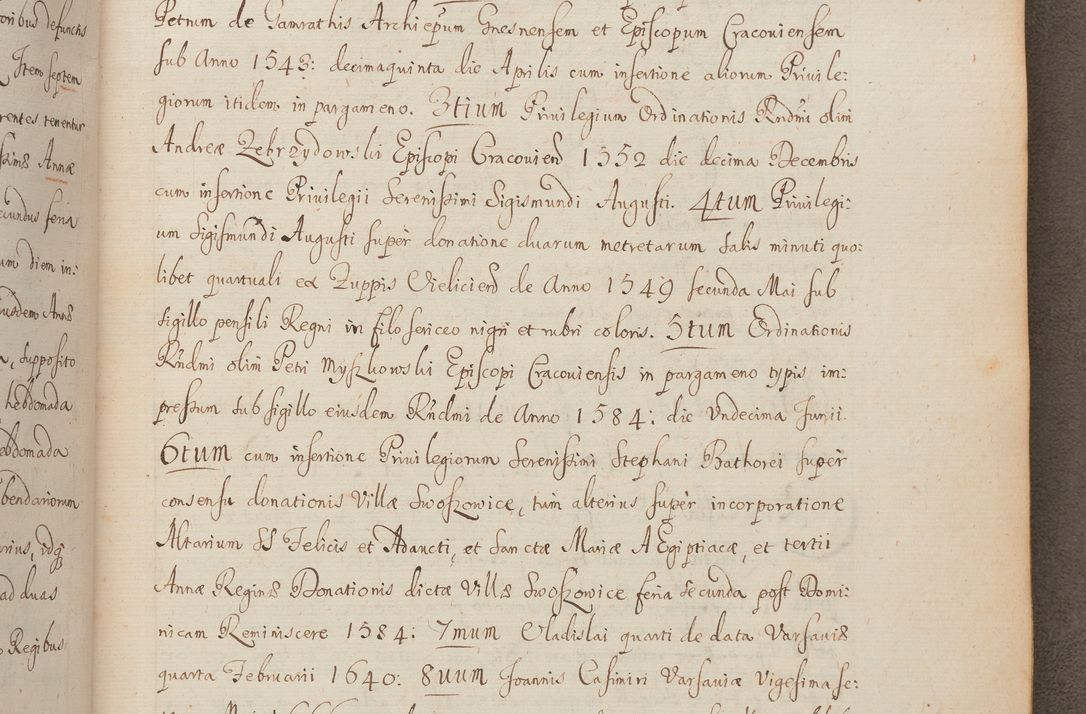 oribus defunctis
Item septem
rentes tenentur
ssimæ Annæ
cundus feria
um diem in:
eiusdem Annæ
a, supposito
hebdomada
ebdomada
bendariorum
rius, idq̃
ad duas
Regibus
Petrum de Gamrathis Archiepũm Gnesnensem et Episcopum Cracoviensem
sub Anno 1543: decimaquinta die Aprilis cum insertione aliorum Privile:
giorum itidem in pargameno. 3tium Privilegium Ordinationis Rndmi olim
Andreæ Zebrzydowski Episcopi Cracovien̄ 1552 die decima Decembris
cum insertione Privilegii Serenissimi Sigismundi Augusti. 4tum Privilegi:
um Sigismundi Augusti super donatione duarum metretarum Salis minuti quo:
libet quartuali ex Zuppis Vielicien̄ de Anno 1549 secunda Mai sub
sigillo pensili Regni in filo sericeo nigri et rubri coloris. 5tum Ordinationis
Rñdmi olim Petri Myszkowski Episcopi Cracoviensis in pargameno typis im:
pressum sub sigillo eiusdem Rñdmi de Anno 1584: die Undecima Junii
6tum cum insertione Privilegiorum Serenissimi Stephani Bathorei super
consensu donationis Villæ Swoszowice, tum alterius super incorporatione
Altarium SS Felicis et Adaucti, et Sanctæ Mariæ AEgiptiacæ, et tertii
Annæ Reginæ Donationis dictæ Villæ Swoszowice feria Secunda post Domi:
nicam Reminiscere 1584: 7mum Vladislai quarti de data Varsaviæ
quarta Februarii 1640: 8uum Joannis Casimiri Varsaviæ Vigesima se: